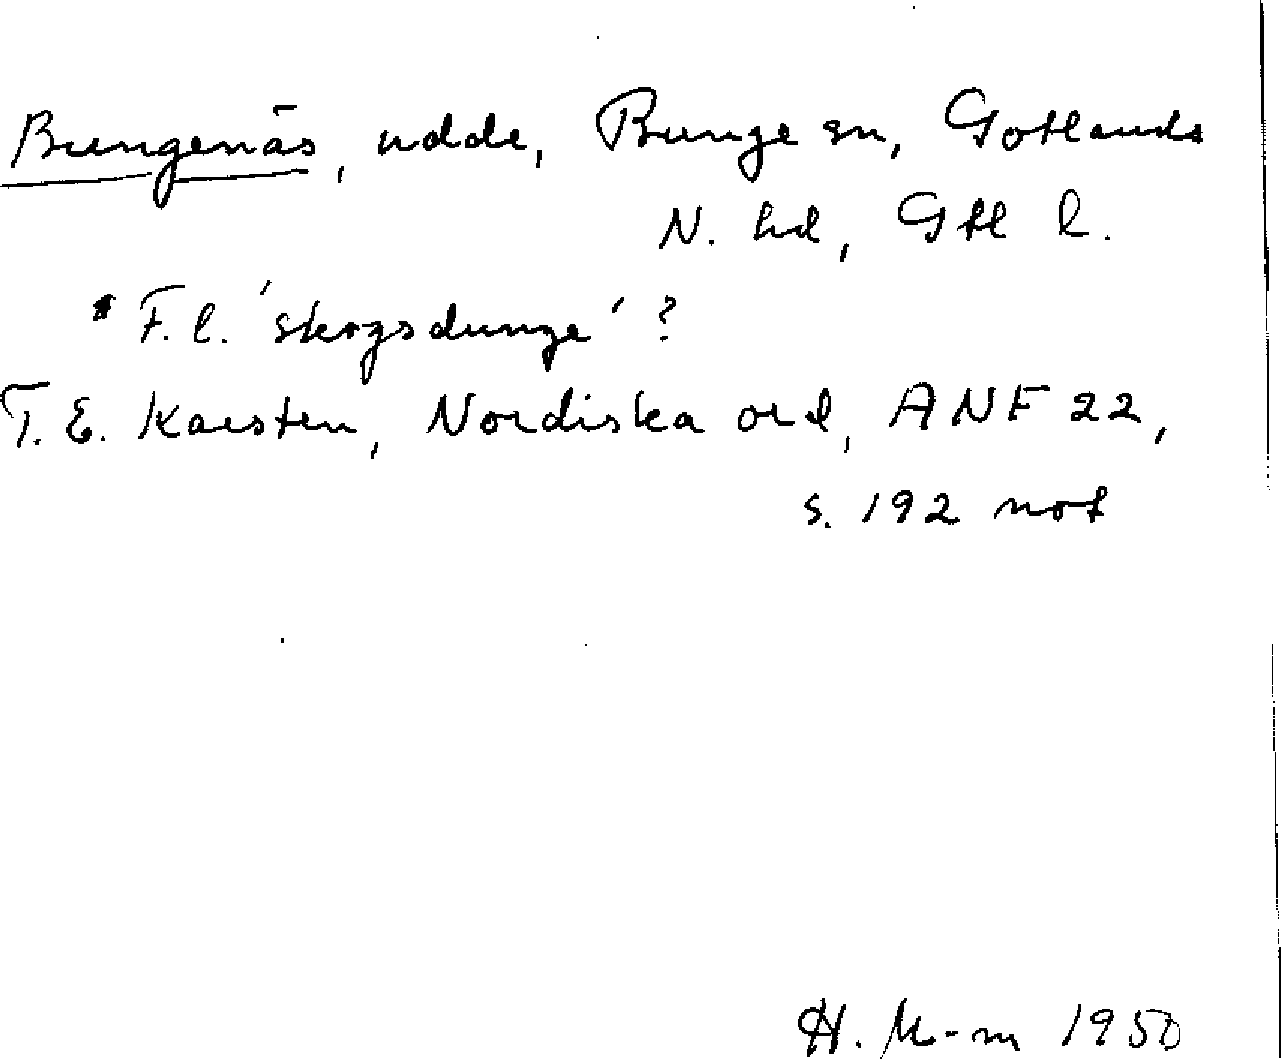 Bungenäs, udde, Bunge sn, Gotlands
N. hd, Gtl l.
* F.l. 'skogsdunge' ?
T. E. Karsten, Nordiska ord, ANF 22,
s. 192 not
H. M-m 1950